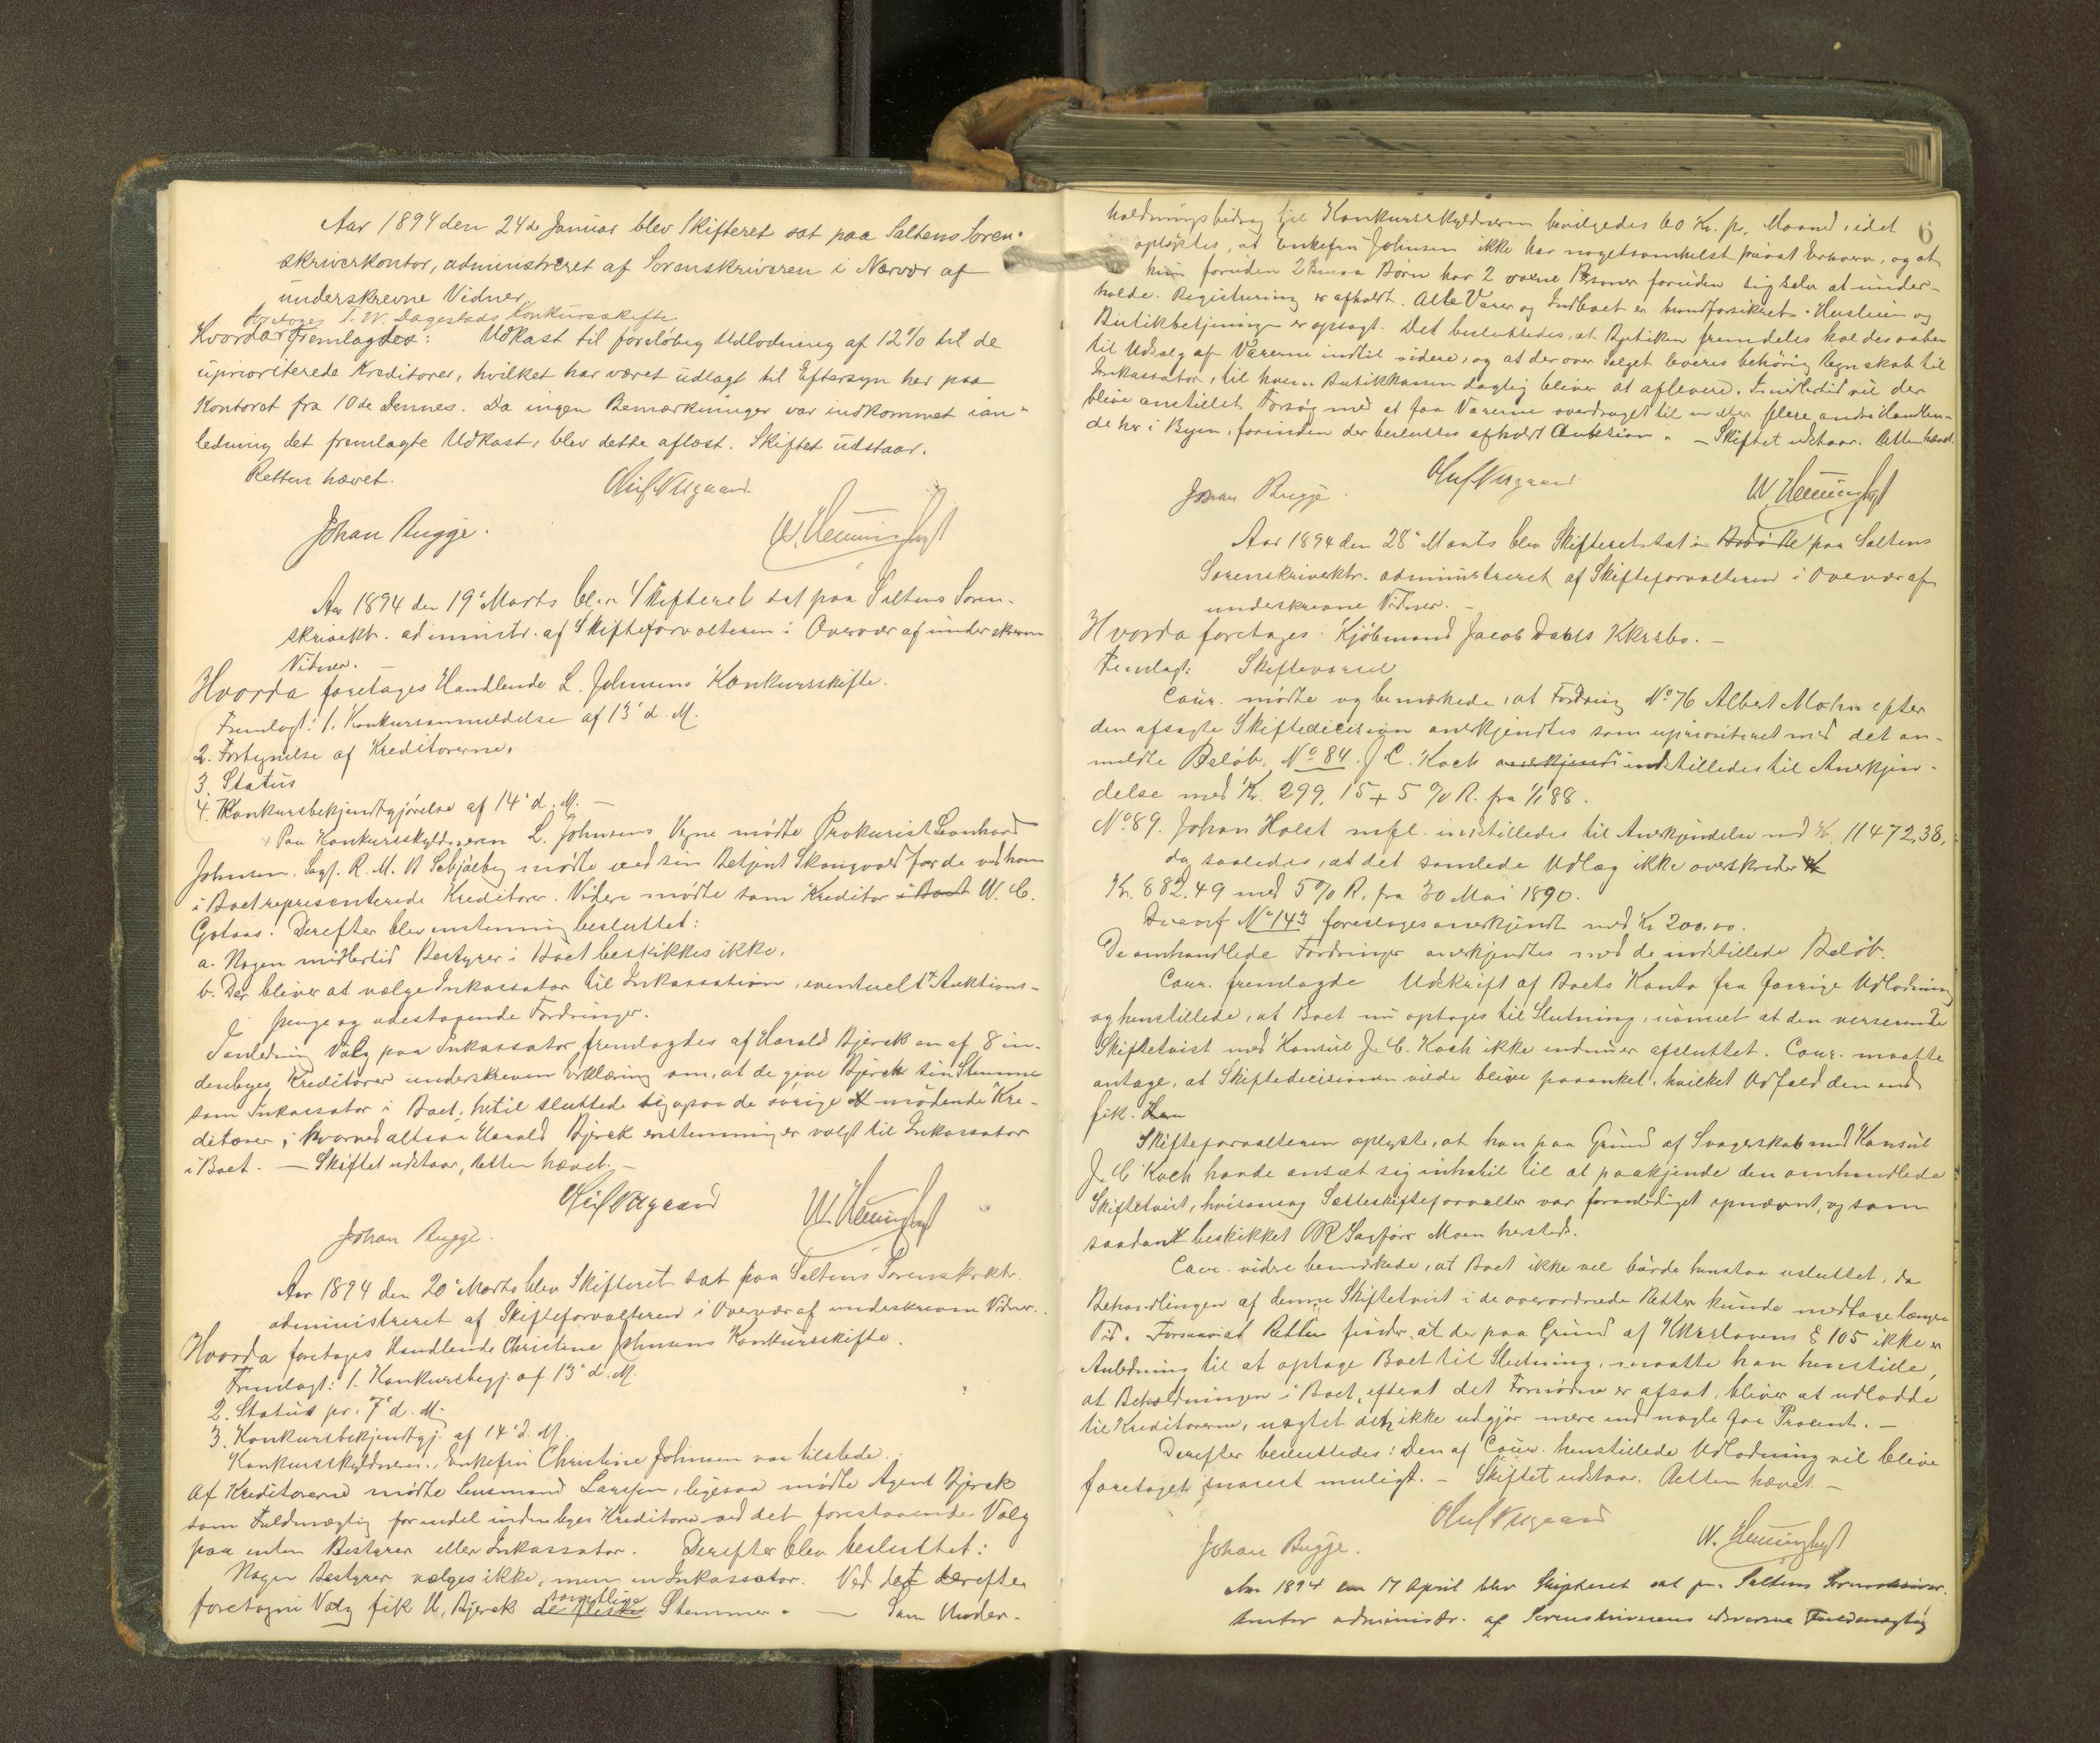 Aar 1894 den 24de Januar blev Skifteret sat paa Saltens Soren-
skriverkontor, administreret af Sorenskriveren i Nærvær af
underskrevne Vidner.
foretoges T. W. Dagestads Konkursskifte
Hvorda Fremlagdes: Udkast til foreløbig Udlodning af 12% til de
uprioriterede Kreditorer, hvilket har været udlagt til Eftersyn her paa
Kontoret fra 10de Dennes. Da ingen Bemærkninger var indkommet i an-
ledning det fremlagte Udkast, blev dette aflæst. Skiftet udstaar.
Retten hævet.
Johan Bugge.
Aar 1894 den 19' Marts blev Skifteret sat paa Saltens Soren-
skriverktr. administr. af Skifteforvalteren i Overvær af underskrevne
Vidner. –
Hvorda foretoges Handlende L. Johnsens Konkursskifte.
Fremlagt: 1. Konkursanmeldelse af 13' d. M.
2. Fortegnelse af Kreditorerne.
3. Status
4. Konkursbekjendtgjørelse af 14' d. M. –
Paa Konkursskyldneren L. Johnsens Vegne mødte Prokurist Leonhard
Johnsen. Sagf. R. M. B Schjølberg mødte ved sin Betjent Skongvold for de ved ham
i Boet representerede Kreditorer. Videre mødte som Kreditor i Boet W. C.
Gotaas. Derefter blev enstemmig besluttet:
a. Nogen midlertid Bestyrer i Boet beskikkes ikke.
b. Der bliver at vælge Inkassator til Inkassation, eventuelt Auktions-
penge og udestaaende Fordringer.
I anledning Valg paa Inkassator fremlagdes af Harald Bjerck en af 8 in-
denbyes Kreditorer underskreven Erklæring om, at de give Bjerck sin Stemme
som Inkassator i Boet, hertil sluttede sig ogsaa de øvrige mødende Kre-
ditorer, hvorved altsaa Harald Bjerck enstemmig er valgt til Inkassator
i Boet. — Skiftet udstaar, Retten hævet. –
Johan Bugge.
Aar 1894 den 20' Marts blev Skifteret sat paa Saltens Sorenskrktr.
administreret af Skifteforvalteren i Overvær af underskrevne Vidner.
Hvorda foretoges Handlende Christine Johnsens Konkursskifte.
Fremlagt: 1. Konkursbegj. af 13' d. M.
2. Status pr. 7' d. M.
3. Konkursbekjendtgj. af 14' d. M.
Konkursskyldneren, Enkefru Christine Johnsen var tilstede.
Af Kreditorerne mødte Lensmand Larssen, ligesaa mødte Agent Bjerck
som Fuldmægtig for endel indenbyes Kreditorer ved det forestaaende Valg
paa enten Bestyrer eller Inkassator. Derefter blev besluttet:
Nogen Bestyrer vælges ikke, men en Inkassator. Ved det derefter
samtlige
foretagne Valg fik H. Bjerck de fleste Stemmer. — Som Under-
6
holdningsbidrag til Konkursskyldneren bevilgedes 60 Kr. pr. Maaned, idet
oplystes, at Enkefru Johnsen ikke har nogetsomhelst privat Erhverv, og at
hun foruden 2 smaa Børn har 2 voxne Personer foruden sig selv at under-
holde. Registrering er afholdt. Alle Varer og Indboet er brandforsikret. Husleien og
Butikbetjeningen er opsagt. Det besluttedes, at Butiken fremdeles holdes aaben
til Udsalg af Varerne indtil videre, og at der over Salget leveres behørig Regnskab til
Inkassator, til hvem Butikkassen daglig bliver at aflevere. Imidlertid vil der
blive anstillet Forsøg med at faa Varerne overdraget til en eller flere andre Handlen-
de her i Byen, forinden der besluttes afholdt Auktion. — Skiftet udstaar. Retten hævet.
Johan Bugge.
Aar 1894 den 28' Marts blev Skifteret sat i Bodø Re paa Saltens
Sorenskriverktr. administreret af Skifteforvalteren i Overvær af
underskrevne Vidner. –
Hvorda foretoges: Kjøbmand Jacob Dahls Kkrsbo. –
Fremlagt: Skiftevarsel
Cour. mødte og bemærkede, at Fordring No 76 Albert Mohn efter
den afsagte Skiftedecision anerkjendtes som uprioriteret med det an-
meldte Beløb. No 84. J. C. Koch anerkjends indstilledes til Anerkjen-
delse med Kr. 299,15 + 5 % R. fra 1/1 88.
No 89. Johan Holst mfl. indstilledes til Anerkjendelse med Kr. 11472,38,
dog saaledes, at det samlede Udlæg ikke overskrider
Kr. 882,49 med 5% R. fra 30 Mai 1890.
No 143 foreslages anerkjendt med Kr 200,00.
De omhandlede Fordringer anerkjendtes med de indstillede Beløb.
Cour. fremlagde Udskrift af Boets Konto fra forrige Udlodning
og henstillede, at Boet nu optages til Slutning, uanset at den verserende
Skiftetvist med Konsul J. C. Koch ikke endnu er afsluttet. Cour. maatte
antage, at Skiftedecisionen vilde blive paaanket, hvilket Udfald den end
fik.
Skifteforvalteren oplyste, at han paa Grund af Svogerskab med Konsul
J. C Koch havde anseet sig inhabil til at paakjende den omhandlede
Skiftetvist, hvisaarsag Sætteskifteforvalter var foranlediget opnævnt, og som
saadant beskikket OR Sagfører Moen hersteds.
Cour. videre bemærkede, at Boet ikke vel burde henstaa usluttet, da
Behandlingen af denne Skiftetvist i de overordnede Retter kunde medtage længere
Tid. Forsaavidt Retten finder, at der paa Grund af Kkrslovens § 105 ikke er
Anledning til at optage Boet til Slutning, maatte han henstille,
at Beholdningen i Boet, efterat det Fornødne er afsat, bliver at udlodde
til Kreditorerne, uagtet det ikke udgjør mere end nogle faa Procent. –
Derefter besluttedes: Den af Cour. henstillede Udlodning vil blive
foretaget snarest muligt. – Skiftet udstaar. Retten hævet. –
Johan Bugge.
Aar 1894 den 17 April blev Skifteret sat paa Saltens Sorenskriver-
kontor administr. af Sorenskriverens edsvorne Fuldmægtig